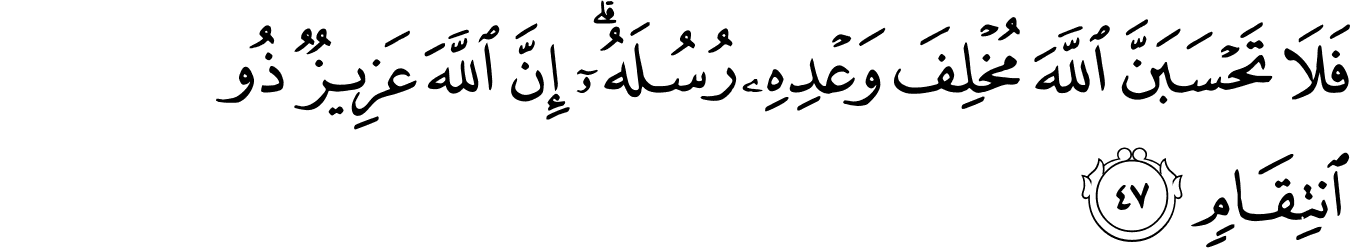 فَلَا تَحْسَبَنَّ ٱللَّهَ مُخْلِفَ وَعْدِهِۦ رُسُلَهُۥٓ ۗ إِنَّ ٱللَّهَ عَزِيزٌ ذُو
ٱنتِقَامٍ ٤٧